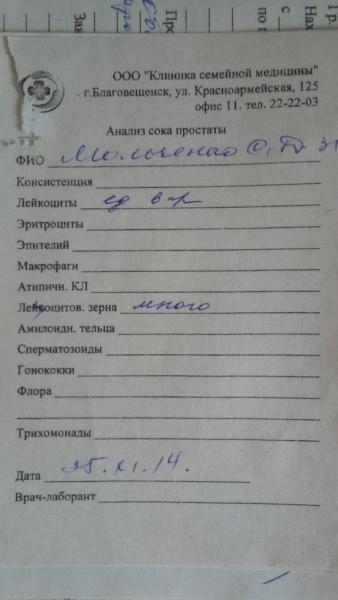 ООО "Клиника семейной медицины"
г.Благовещенск, ул. Красноармейская, 125
офис 11. тел. 22-22-03
Анализ сока простаты
ФИО
Консистенция
Лейкоциты ед в пр
Эритроциты
Эпителий
Макрофаги
Атипичн. КЛ
Лецоцитов. зерна много
Амилоидн. тельца
Сперматозоиды
Гонококки
Флора
Трихомонады
Дата 25.XI.14.
Врач-лаборант